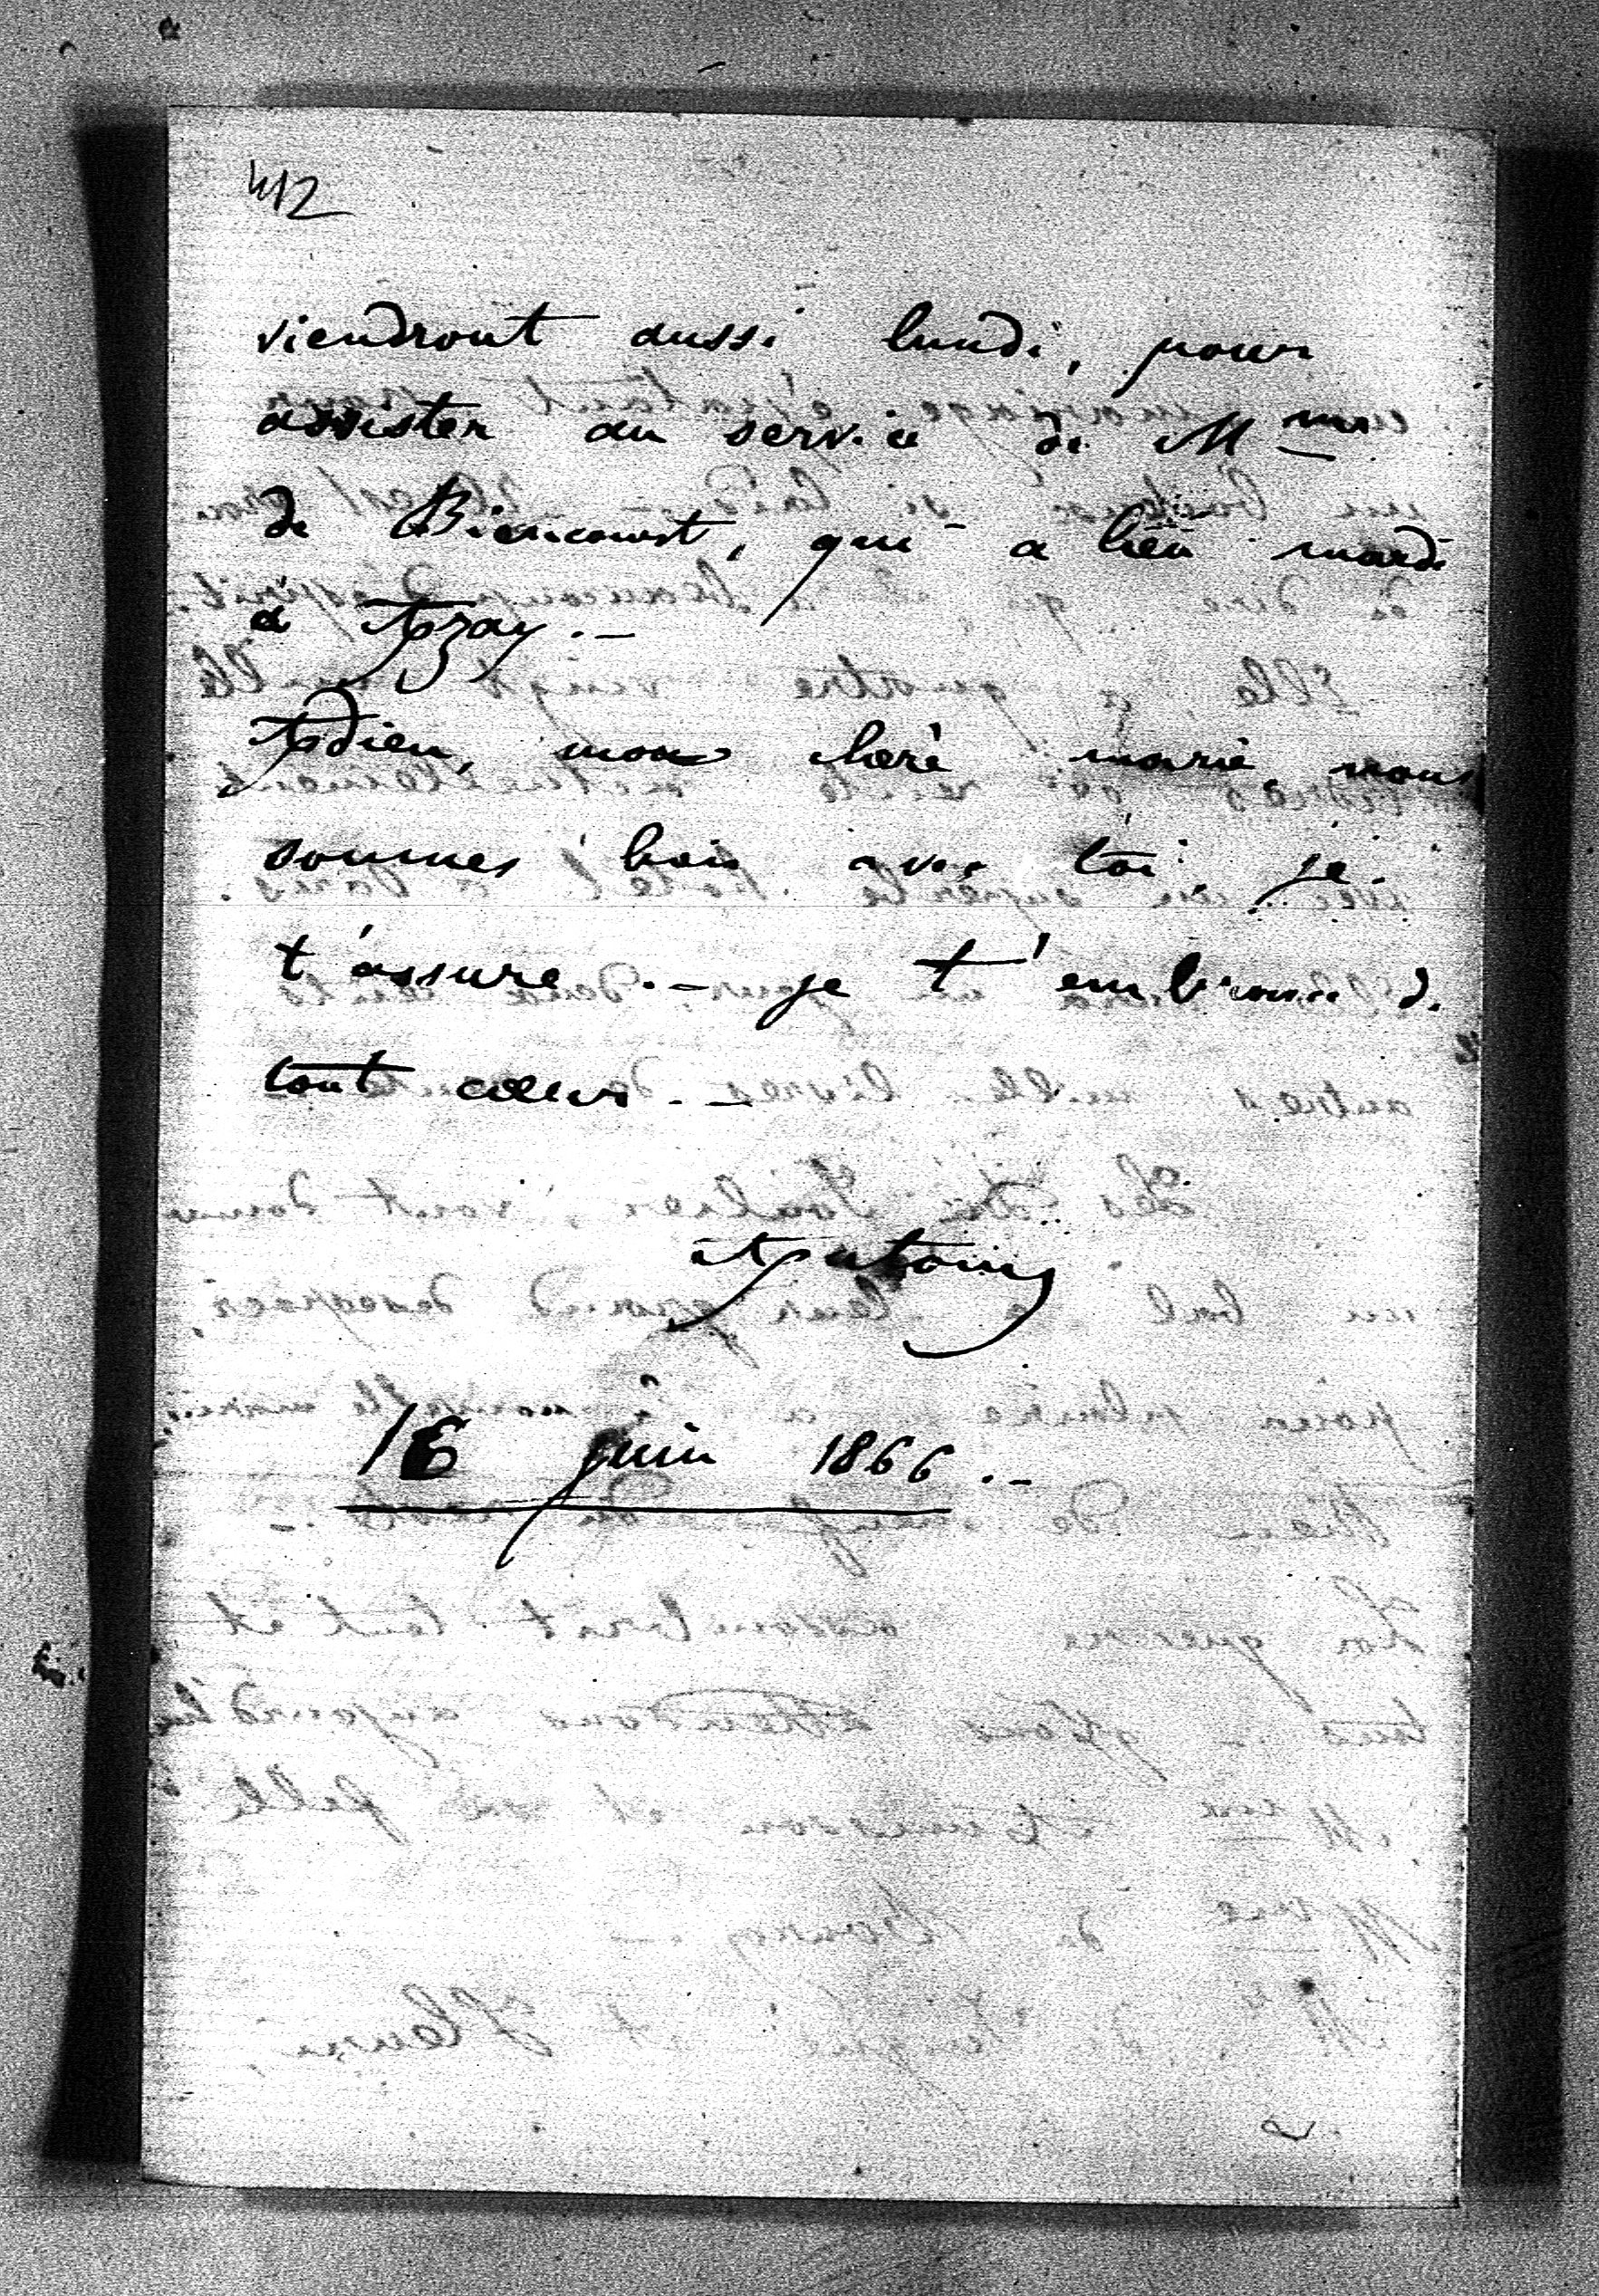 412
viendront aussi lundi, pour
assister au service de Mme
de Biencourt, qui a lieu mardi
à Azay. –
Adieu, mon chéri, nous
sommes bien avec toi je
t'assure. – je t'embrasse de
tout cœur. –
Antoine
16 juin 1866. –